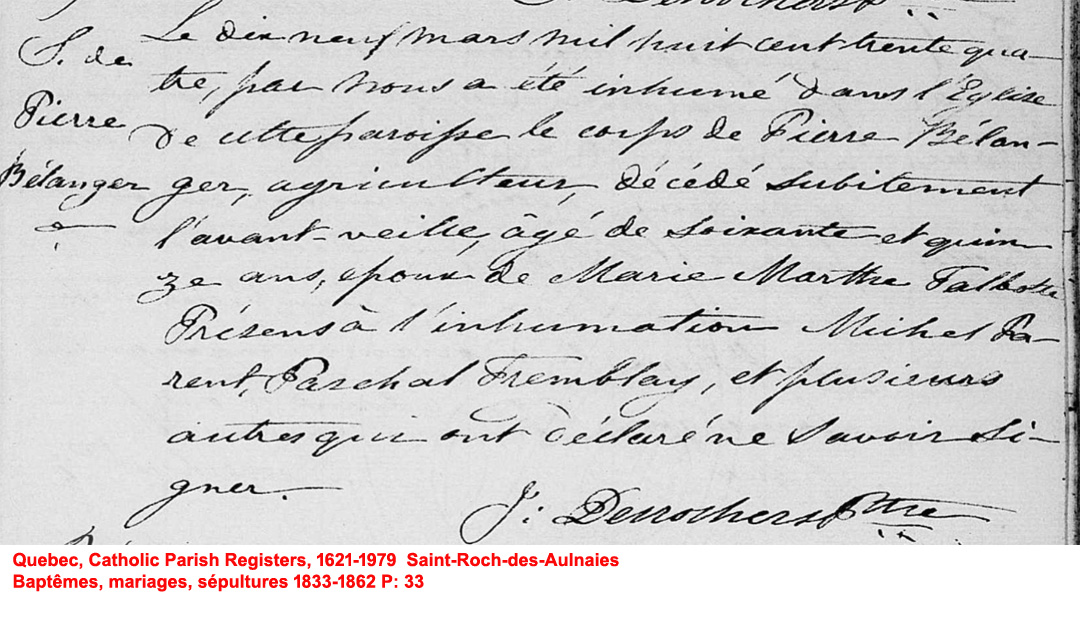 S. de
Pierre
Bélanger
Le dix neuf mars mil huit cent trente qua-
tre, par nous a été inhumé dans l'Eglise
de cette paroisse le corps de Pierre Bélan-
ger, agriculteur, décédé subitement
l'avant-veille, âgé de soixante et quin
ze ans, epoux de Marie Marthe Talbot
Présens à l'inhumation Michel Pa-
rent, Paschal Tremblay, et plusieurs
autres qui ont déclaré ne savoir si-
gner.
J: Desrochers Ptre
Quebec, Catholic Parish Registers, 1621-1979 Saint-Roch-des-Aulnaies
Baptêmes, mariages, sépultures 1833-1862 P: 33